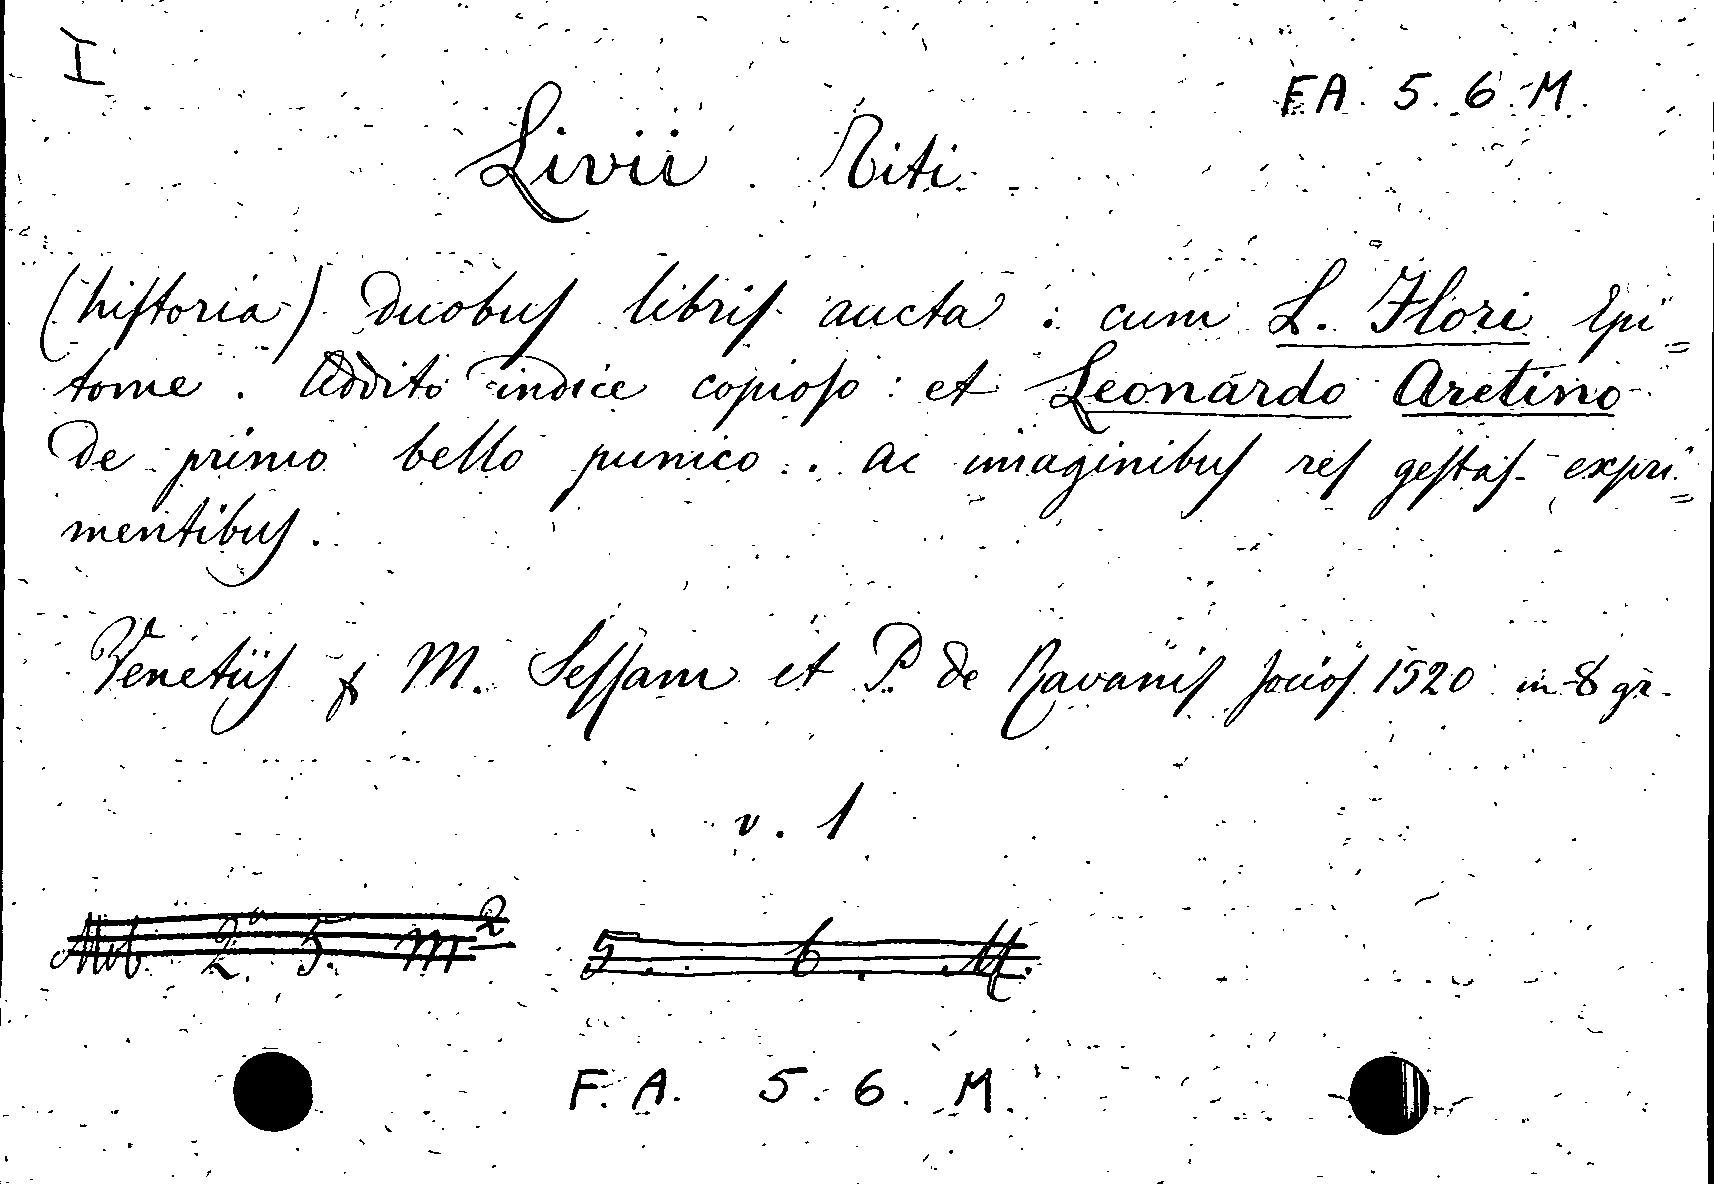 I
F.A. 5. 6. M.
Livii Titi
(hiſtoria) duobuſ libriſ aucta : cum L. Flori Epi=
tome. Addito indice copioſo : et Leonardo Aretino
de primo bello punico. . ac imaginibuſ reſ geſtaſ expri=
mentibuſ.
Venetiiſ p M. Seſſam et P. de Ravaniſ ſocioſ 1520 in 8 gr.
v. 1
Mob 2ª. 5. M² 5. 6. M.
F. A. 5. 6. M.